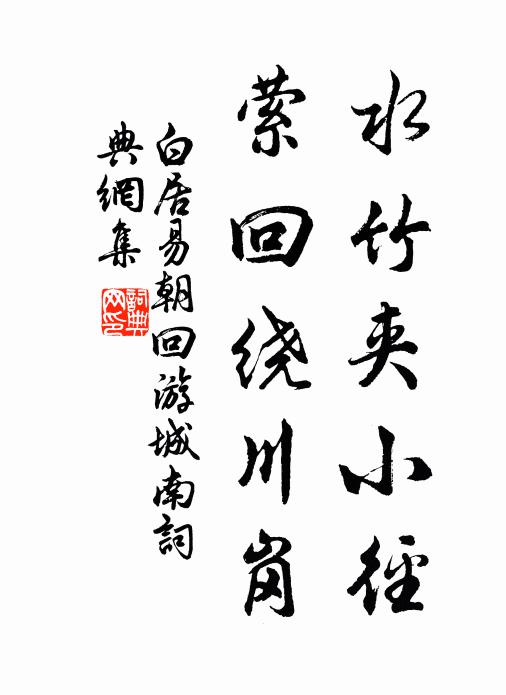 水竹夹小径
萦回绕川岗
白居易朝回游城南詞
典網集
詞典
网印